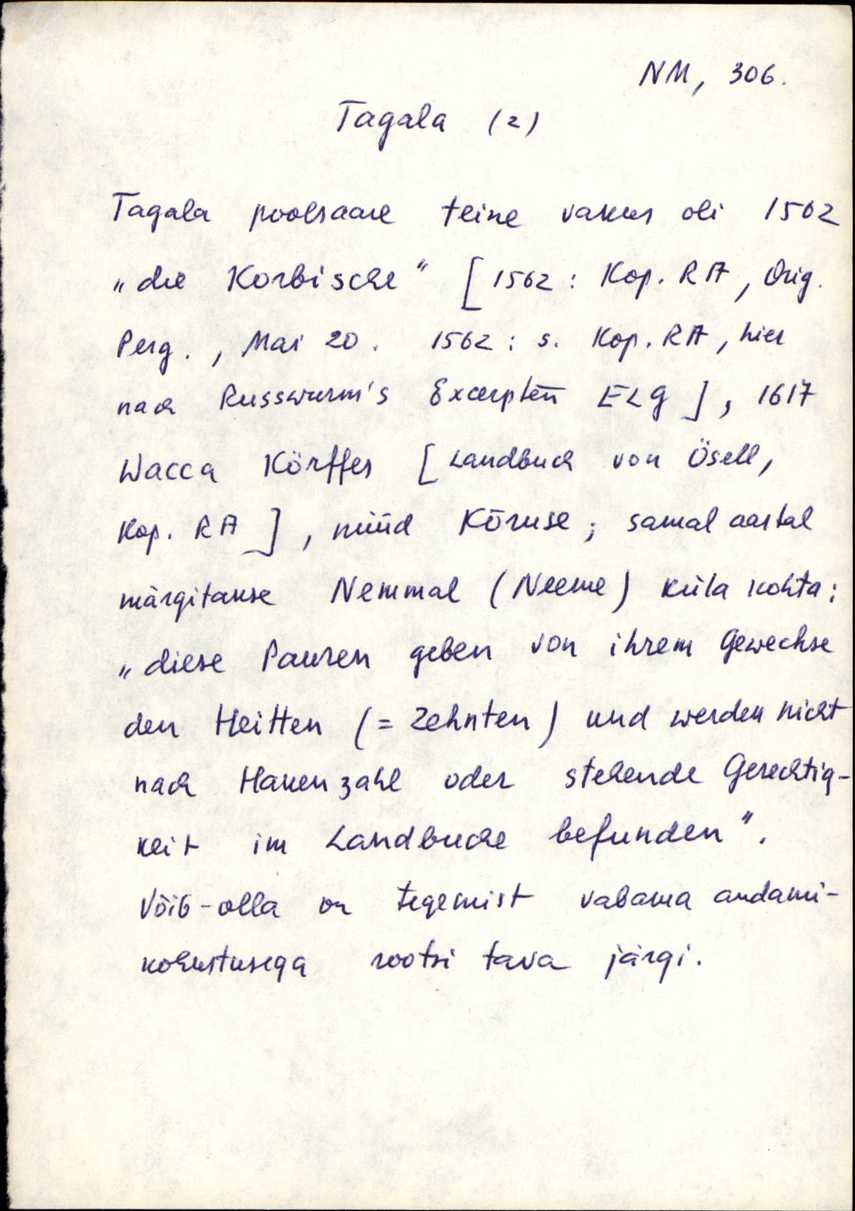 NM, 306.
Tagala (2)
Tagala poolsaare teine vakus oli 1562
„die Korbische" [1562: Kop. RA, Orig.
Perg., Mai 20. 1562: s. Kop. RA, hier
nach Russwurm's Excerpten ELG], 1617
Wacca Körffes [Landbuch von Ösell,
Kop. RA], nüüd Kõruse; samal aastal
märgitakse Nemmal (Neeme) küla kohta:
„diese Pauren geben von ihrem Gewechse
den Heitten (= Zehnten) und werden nicht
nach Hakenzahl oder stehende Gerechtig-
keit im Landbuche befunden".
Võib-olla on tegemist vabama andami-
kohustusega rootsi tava järgi.